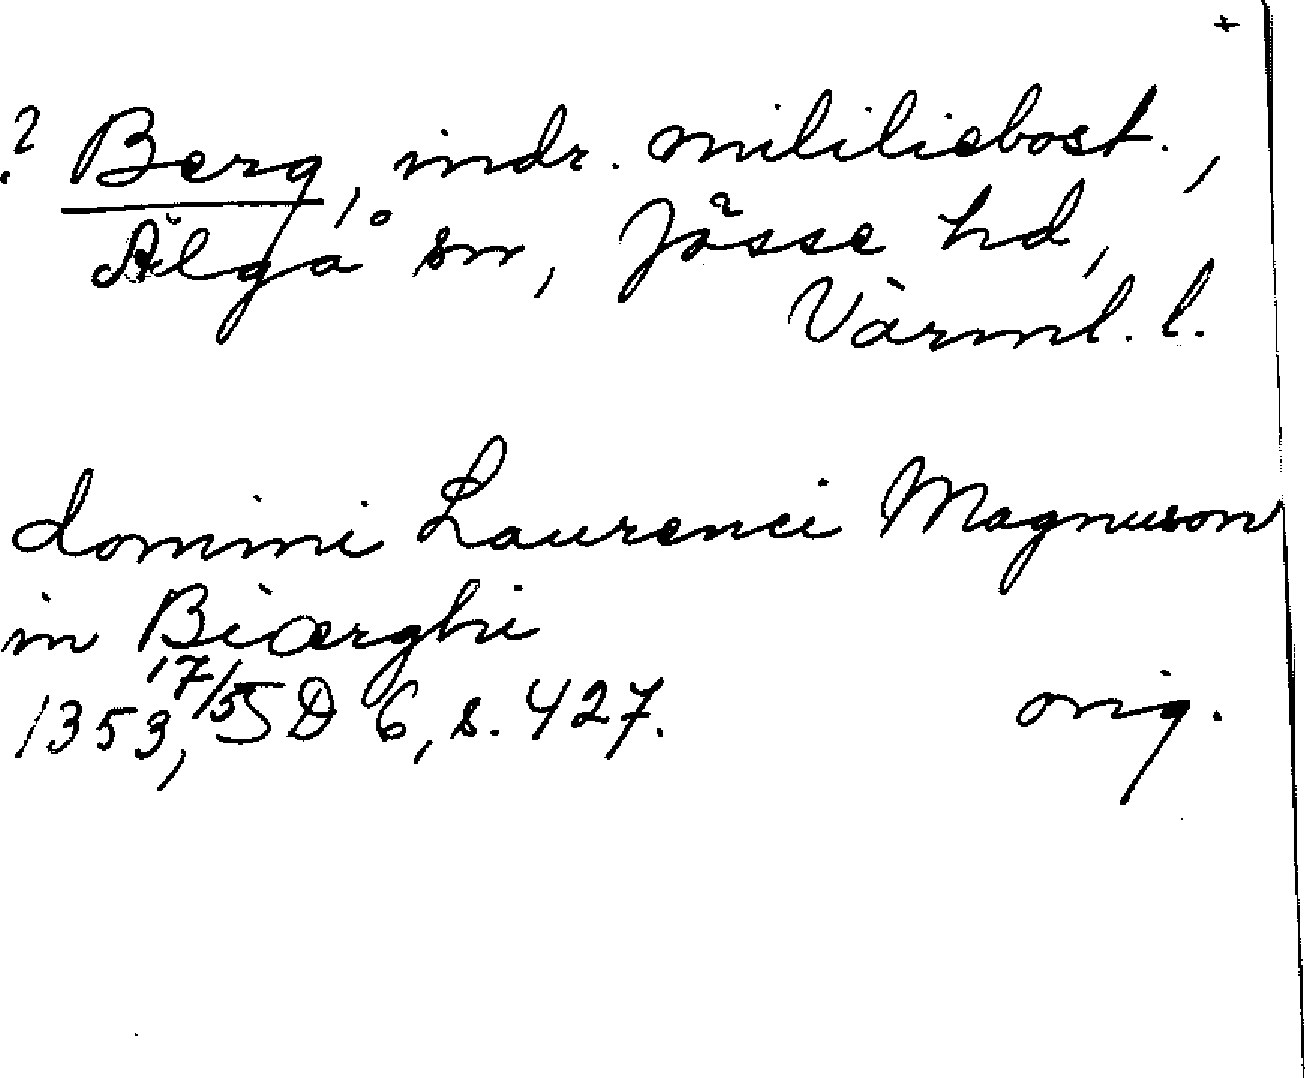 +
? Berg, indr. militiebost.,
Älgå sn, Jösse hd,
Värml. l.
domini Laurencii Magnuson
in Biærghi
1353, 17/5 SD 6, s. 427. orig.